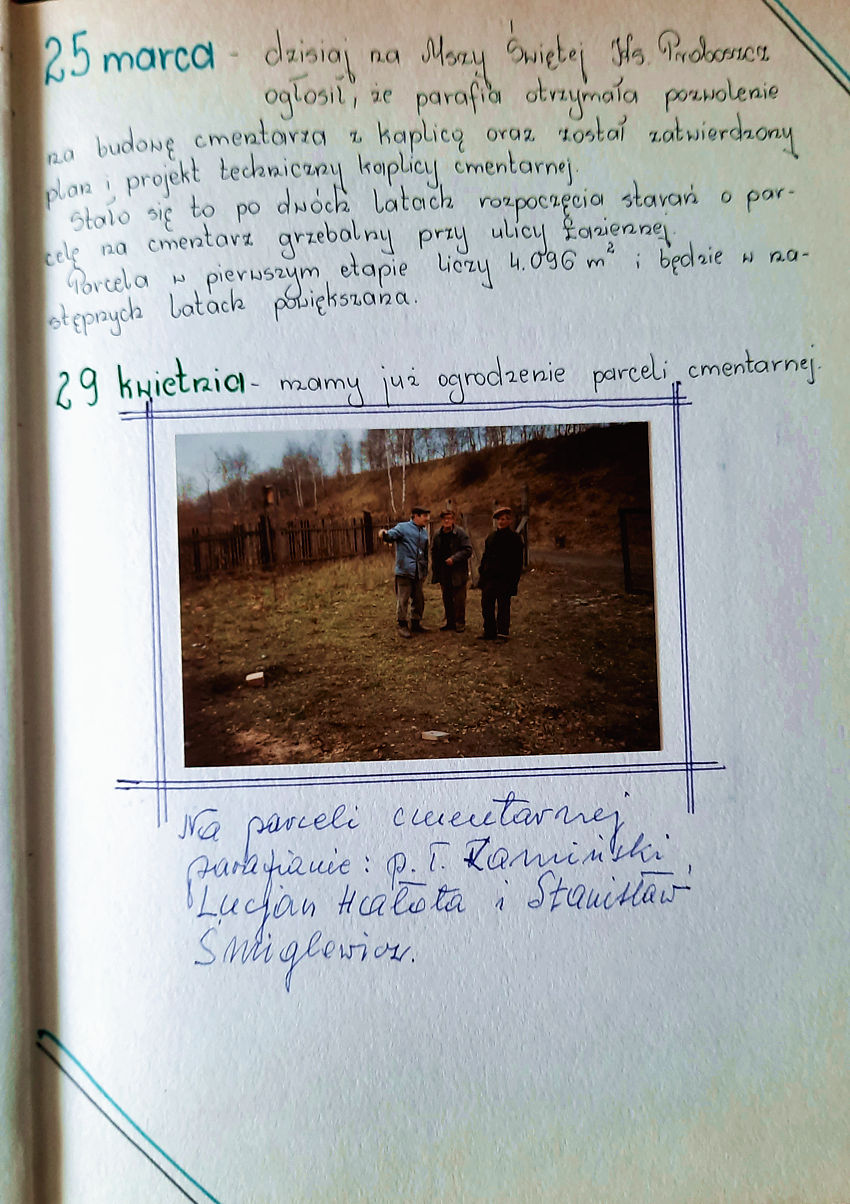 25 marca - dzisiaj na Mszy Świętej Ks. Proboszcz
ogłosił, że parafia otrzymała pozwolenie
na budowę cmentarza z kaplicą oraz został zatwierdzony
plan i projekt techniczny kaplicy cmentarnej.
Stało się to po dwóch latach rozpoczęcia starań o par-
celę na cmentarz grzebalny przy ulicy Łaziennej.
Parcela w pierwszym etapie liczy 4.096 m² i będzie w na-
stępnych latach powiększana.
29 kwietnia - mamy już ogrodzenie parceli cmentarnej.
Na parceli cmentarnej
parafianie: p. T. Kamiński,
Lucjan i Stanisław
Śmiglewicz.